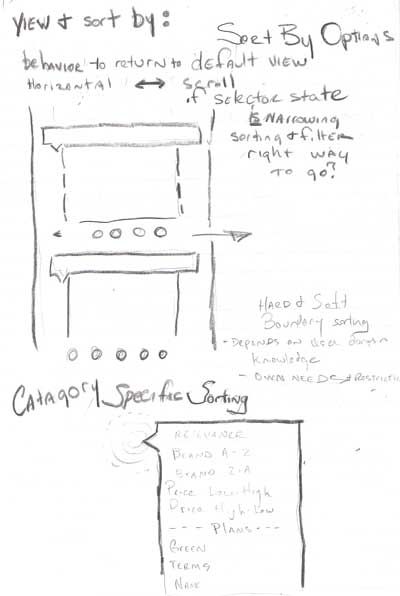 View & sort by:
Sort By Options
behavior to return to default view
Horizontal ↔ scroll
if selector state
is Narrowing
sorting & filter
right way
to go?
Hard & Soft
Boundary sorting
- Depends on user domain
knowledge
- Owns Needs & Restrictio
Catagory Specific Sorting
Relevance
Brand A-Z
Brand Z-A
Price Low-High
Price High-Low
--- Plans ---
Green
Terms